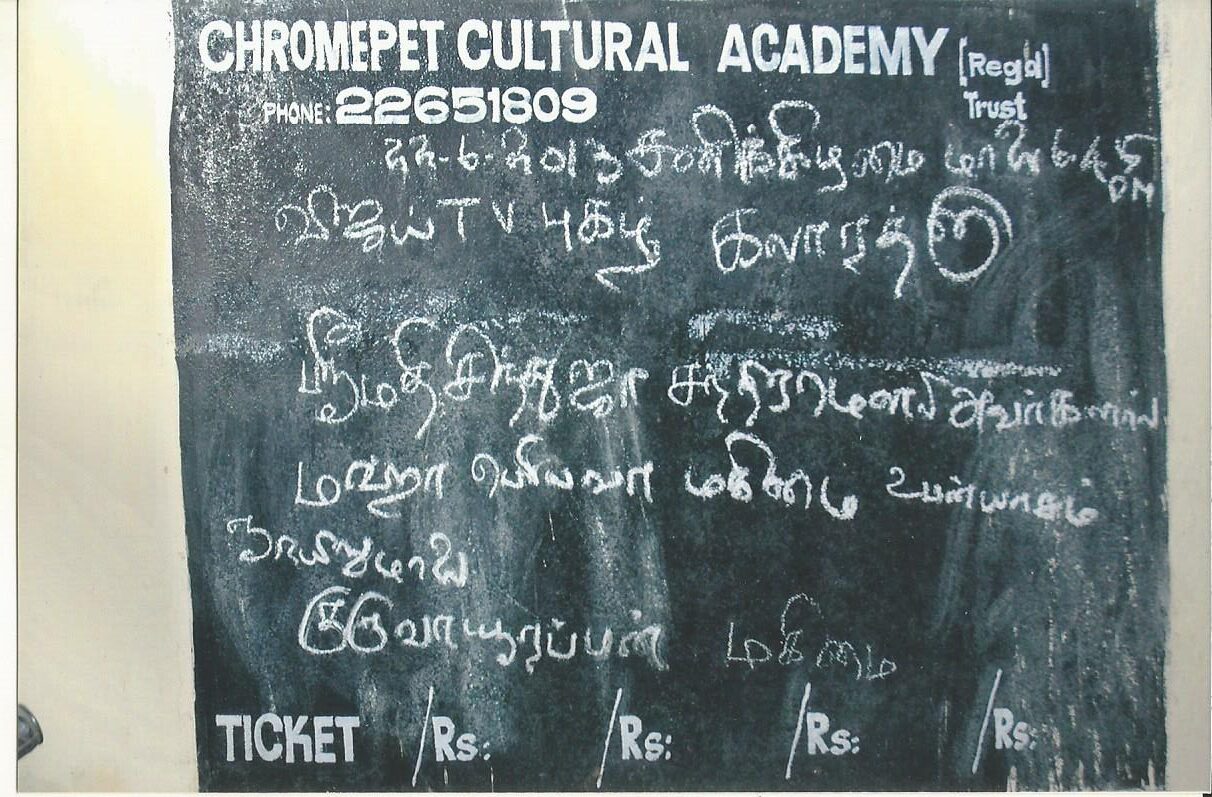 CHROMEPET CULTURAL ACADEMY [Regd]
PHONE: 22651809 Trust
22-6-2013 சனிக்கிழமை மாலை 6-மணி
PM
விஜய் TV புகழ் கலாரத்னா
ஸ்ரீமதி சிந்துஜா சந்திரமௌலி அவர்களால்
மஹா பெரியவா மகிமை உபன்யாசம்
ஞாயிறு மாலை
குருவாயூரப்பன் மகிமை
TICKET /Rs: /Rs: /Rs: /Rs: